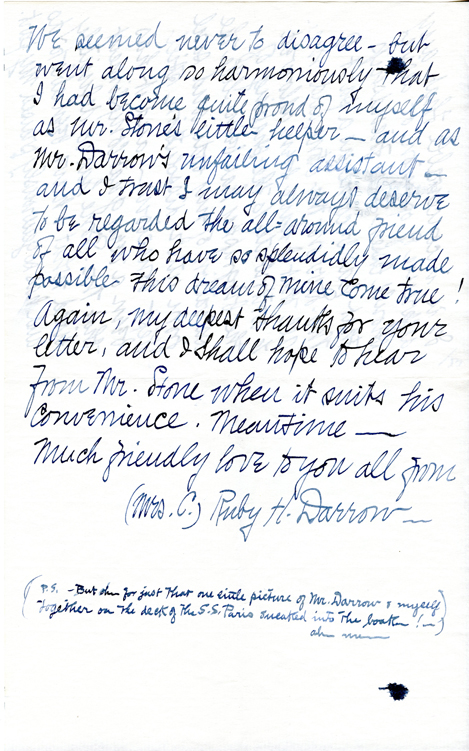 We seemed never to disagree - but
went along so harmoniously that
I had become quite proud of myself
as Mr. Stone's little helper — and as
Mr. Darrow's unfailing assistant —
and I trust I may always deserve
to be regarded the all-around friend
of all who have so splendidly made
possible this dream of mine come true!
Again, my deepest thanks for your
letter, and I shall hope to hear
from Mr. Stone when it suits his
convenience. Meantime —
Much friendly love to you all from
(Mrs. C.) Ruby H. Darrow —
(P.S. - But ohn for just that one little picture of Mr. Darrow & myself
together on the deck of the S.S. Paris sneaked into the book ! —)